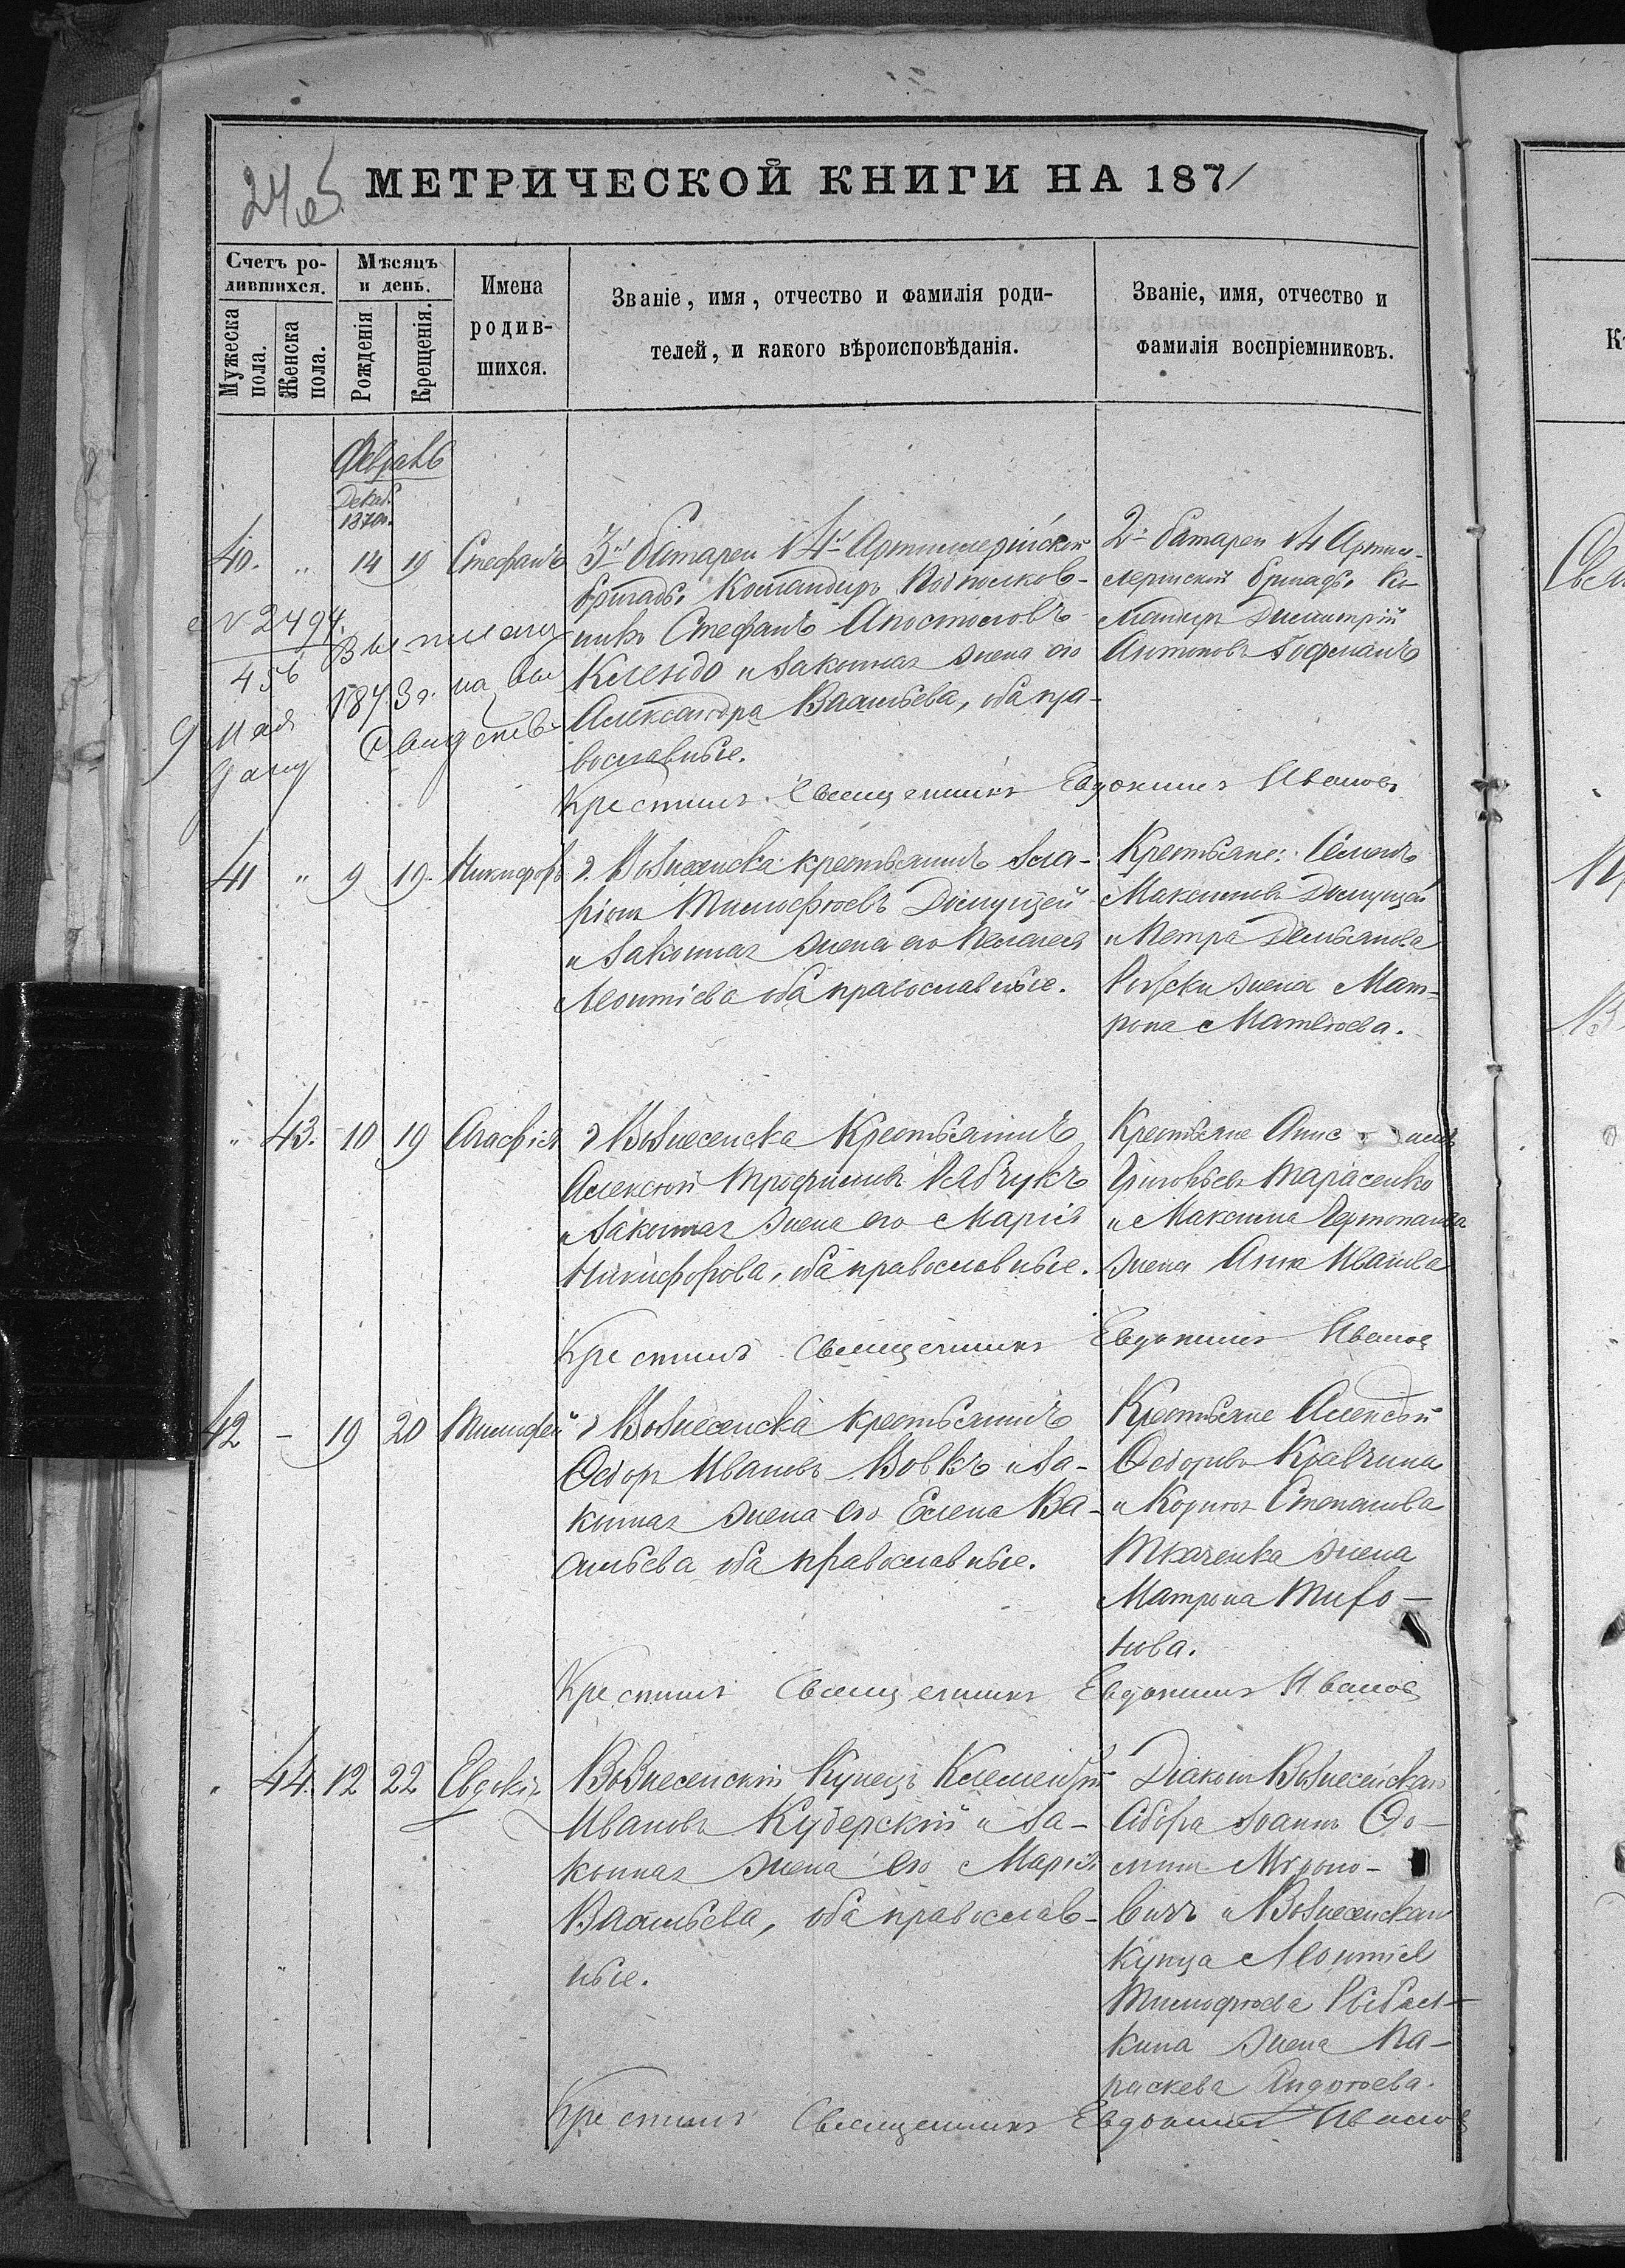 245
МЕТРИЧЕСКОЙ КНИГИ НА 1871
Счетъ родившихся.
Мѣсяцъ и день.
Мужеска пола.
Женска пола.
Рожденія
Крещенія.
Имена
родив-
шихся.
Званіе, имя, отчество и фамилія роди-
телей, и какого вѣроисповѣданія.
Званіе, имя, отчество и
фамилія воспріемниковъ.
Февраль
Декаб.
1870 г.
40. " 14 19 Стефанъ
3й батареи 14й Артиллерійской
бригады Командиръ Подполков-
никъ Стефанъ Апостоловъ
и законная жена его
Александра Васильева, оба пра-
вославные.
2й батареи 14 Артил-
лерійской бригады Ко-
мандиръ Димитрій
Антоновъ Гофманъ
№ 2494.
456
9 мая
1873 г. на
Крестилъ Священникъ Евдокимъ Ивановъ
41 " 9 19. Никифоръ
г. Вознесенска крестьянинъ Ила-
ріонъ Тимофѣевъ
и законная жена его Пелагея
Леонтіева оба православные.
Крестьяне: Семенъ
Максимовъ
и Петра Демьянова
жена Мат-
рона Матвѣева.
" 43. 10 19 Агафія
г Вознесенска Крестьянинъ
Алексѣй Трофимовъ Рябчукъ
и законная жена его Марія
Никифорова, оба православные.
Крестьяне
Тарасенко
и Максима
жена Анна Иванова
Крестилъ Священникъ Евдокимъ Ивановъ
42 - 19 20 Тимофей
г Вознесенска крестьянинъ
Ѳедоръ Ивановъ Вовкъ и за-
конная жена его Елена Ва-
сильева оба православные.
Крестьяне Алексѣй
Ѳедоровъ Кравчина
и Корнія Степанова
Ткаченка жена
Матрона Тихо-
нова.
Крестилъ Священникъ Евдокимъ Ивановъ
" 44. 12 22 Евдокія
Вознесенскій Купецъ Клементій
Ивановъ Кудерскій и за-
конная жена его Марія
Васильева, оба православ-
ные.
Діаконъ Вознесенскаго
Собора Іоаннъ Ѳо-
минъ Мироно-
вичъ и Вознесенскаго
купца Леонтія
Тимофѣева Рыбал-
кина жена Па-
раскева Андреева.
Крестилъ Священникъ Евдокимъ Ивановъ